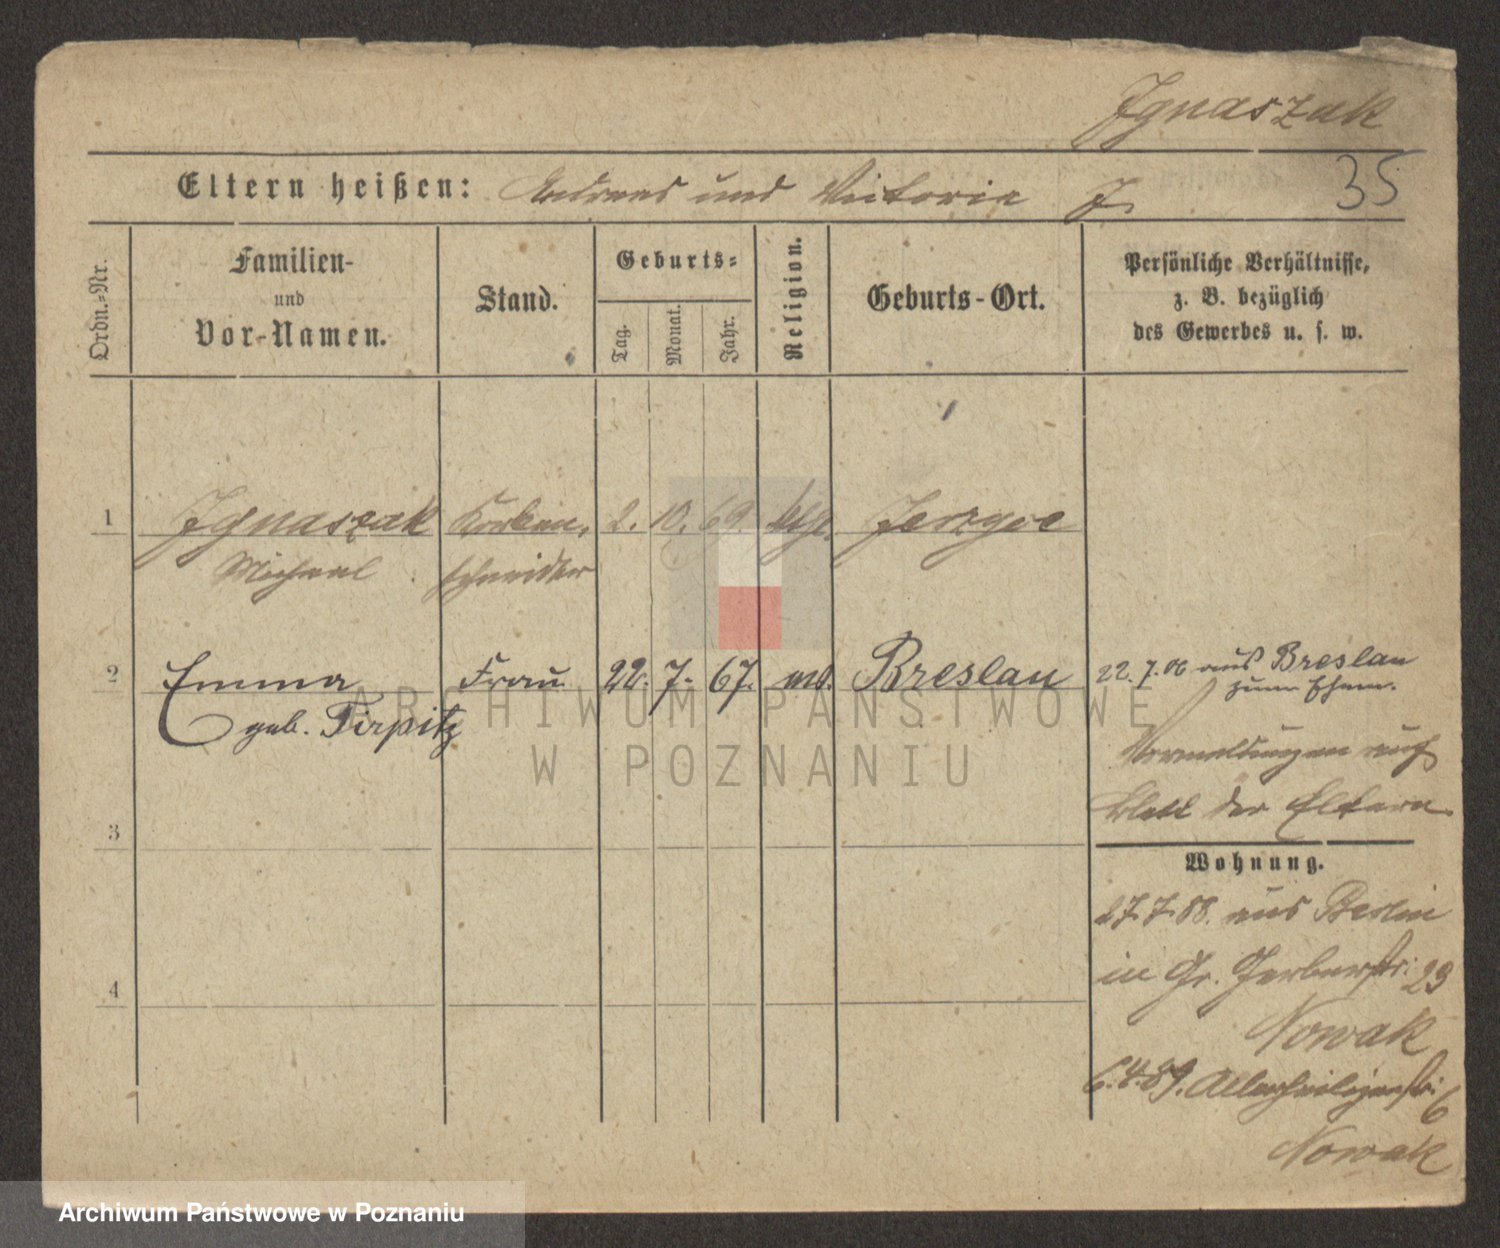 Ignaszak
35
Eltern heißen: Andreas und Victoria J.
Ordn.-Nr.
Familien-
und
Vor-Namen.
Stand.
Geburts-
Tag.
Monat.
Jahr.
Religion.
Geburts-Ort.
Persönliche Verhältnisse,
z. B. bezüglich
des Gewerbes u. s. w.
1 Ignaszak 2. 10. 69. Jerzyce
Michael schneider
2 Emma Frau 22. 7. 67. Breslau 22. 7. 06 aus Breslau
zum Ehem.
geb. Tirpitz
Vermeldungen auch
Blatt der Eltern
3
Wohnung.
27.7.88. aus Berlin
in Gr. Gerberstr: 23
4
Nowak
6.4.89. Allerheiligenstr: 6
Nowak
ARCHIWUM PAŃSTWOWE
W POZNANIU
Archiwum Państwowe w Poznaniu